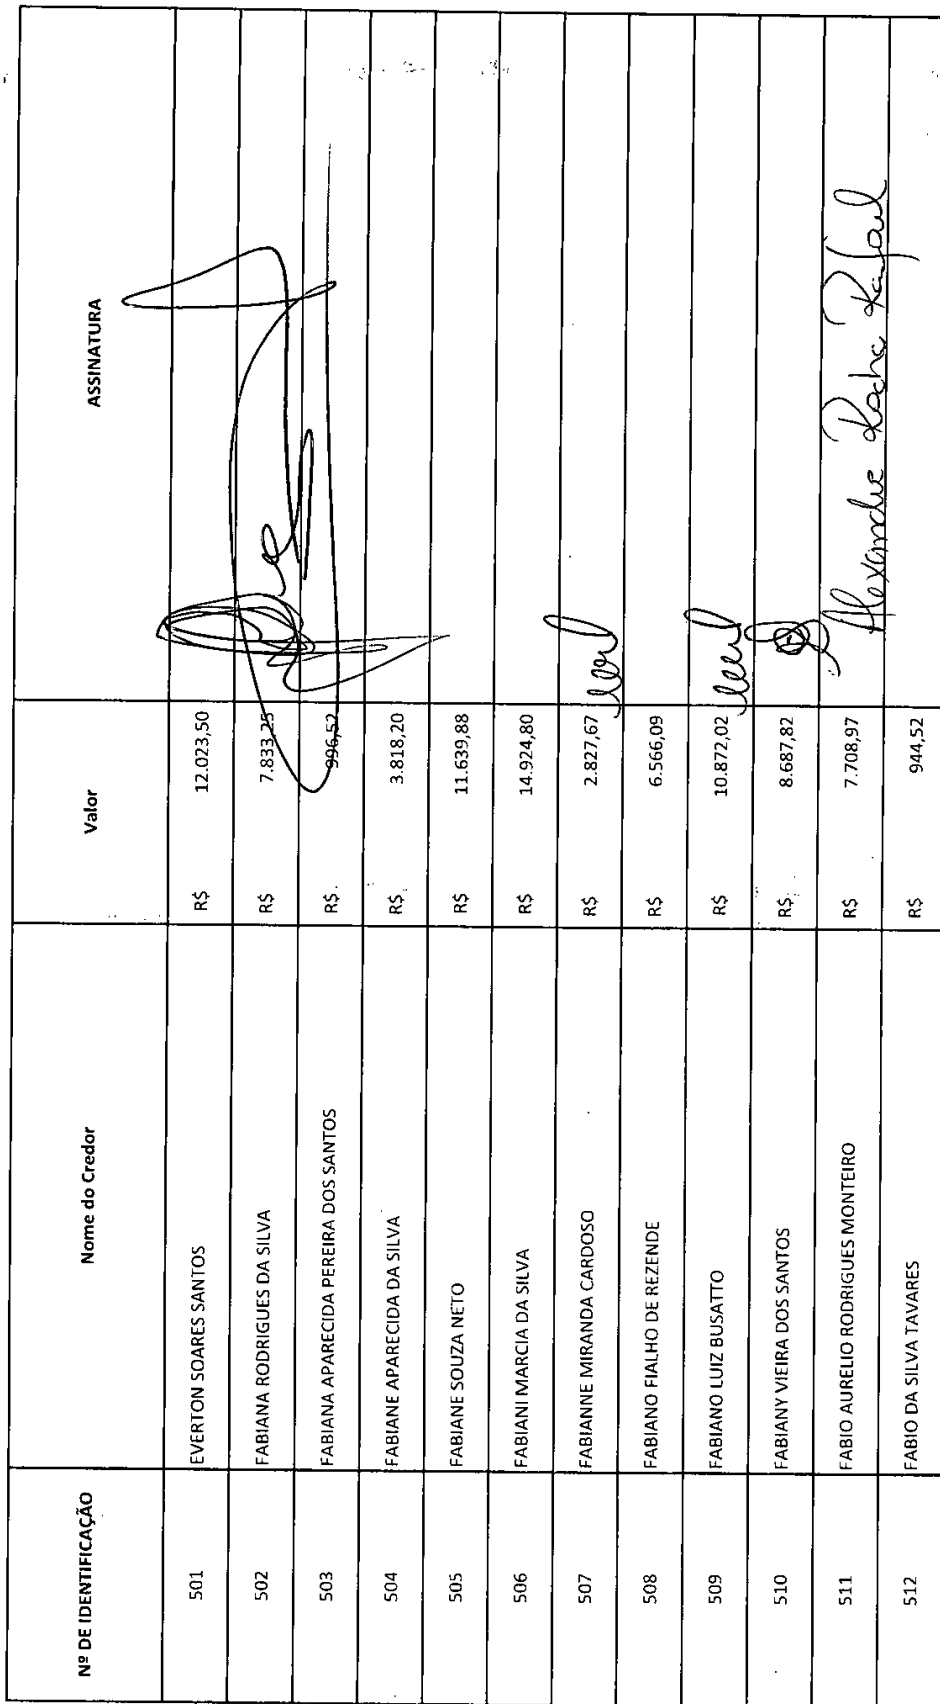 Nº DE IDENTIFICAÇÃO Nome do Credor Valor ASSINATURA
501 EVERTON SOARES SANTOS R$ 12.023,50
502 FABIANA RODRIGUES DA SILVA R$ 7.833,25
503 FABIANA APARECIDA PEREIRA DOS SANTOS R$ 996,52
504 FABIANE APARECIDA DA SILVA R$ 3.818,20
505 FABIANE SOUZA NETO R$ 11.639,88
506 FABIANI MARCIA DA SILVA R$ 14.924,80
507 FABIANNE MIRANDA CARDOSO R$ 2.827,67
508 FABIANO FIALHO DE REZENDE R$ 6.566,09
509 FABIANO LUIZ BUSATTO R$ 10.872,02
510 FABIANY VIEIRA DOS SANTOS R$ 8.687,82
511 FABIO AURELIO RODRIGUES MONTEIRO R$ 7.708,97 Alexandre Rocha Rafael
512 FABIO DA SILVA TAVARES R$ 944,52